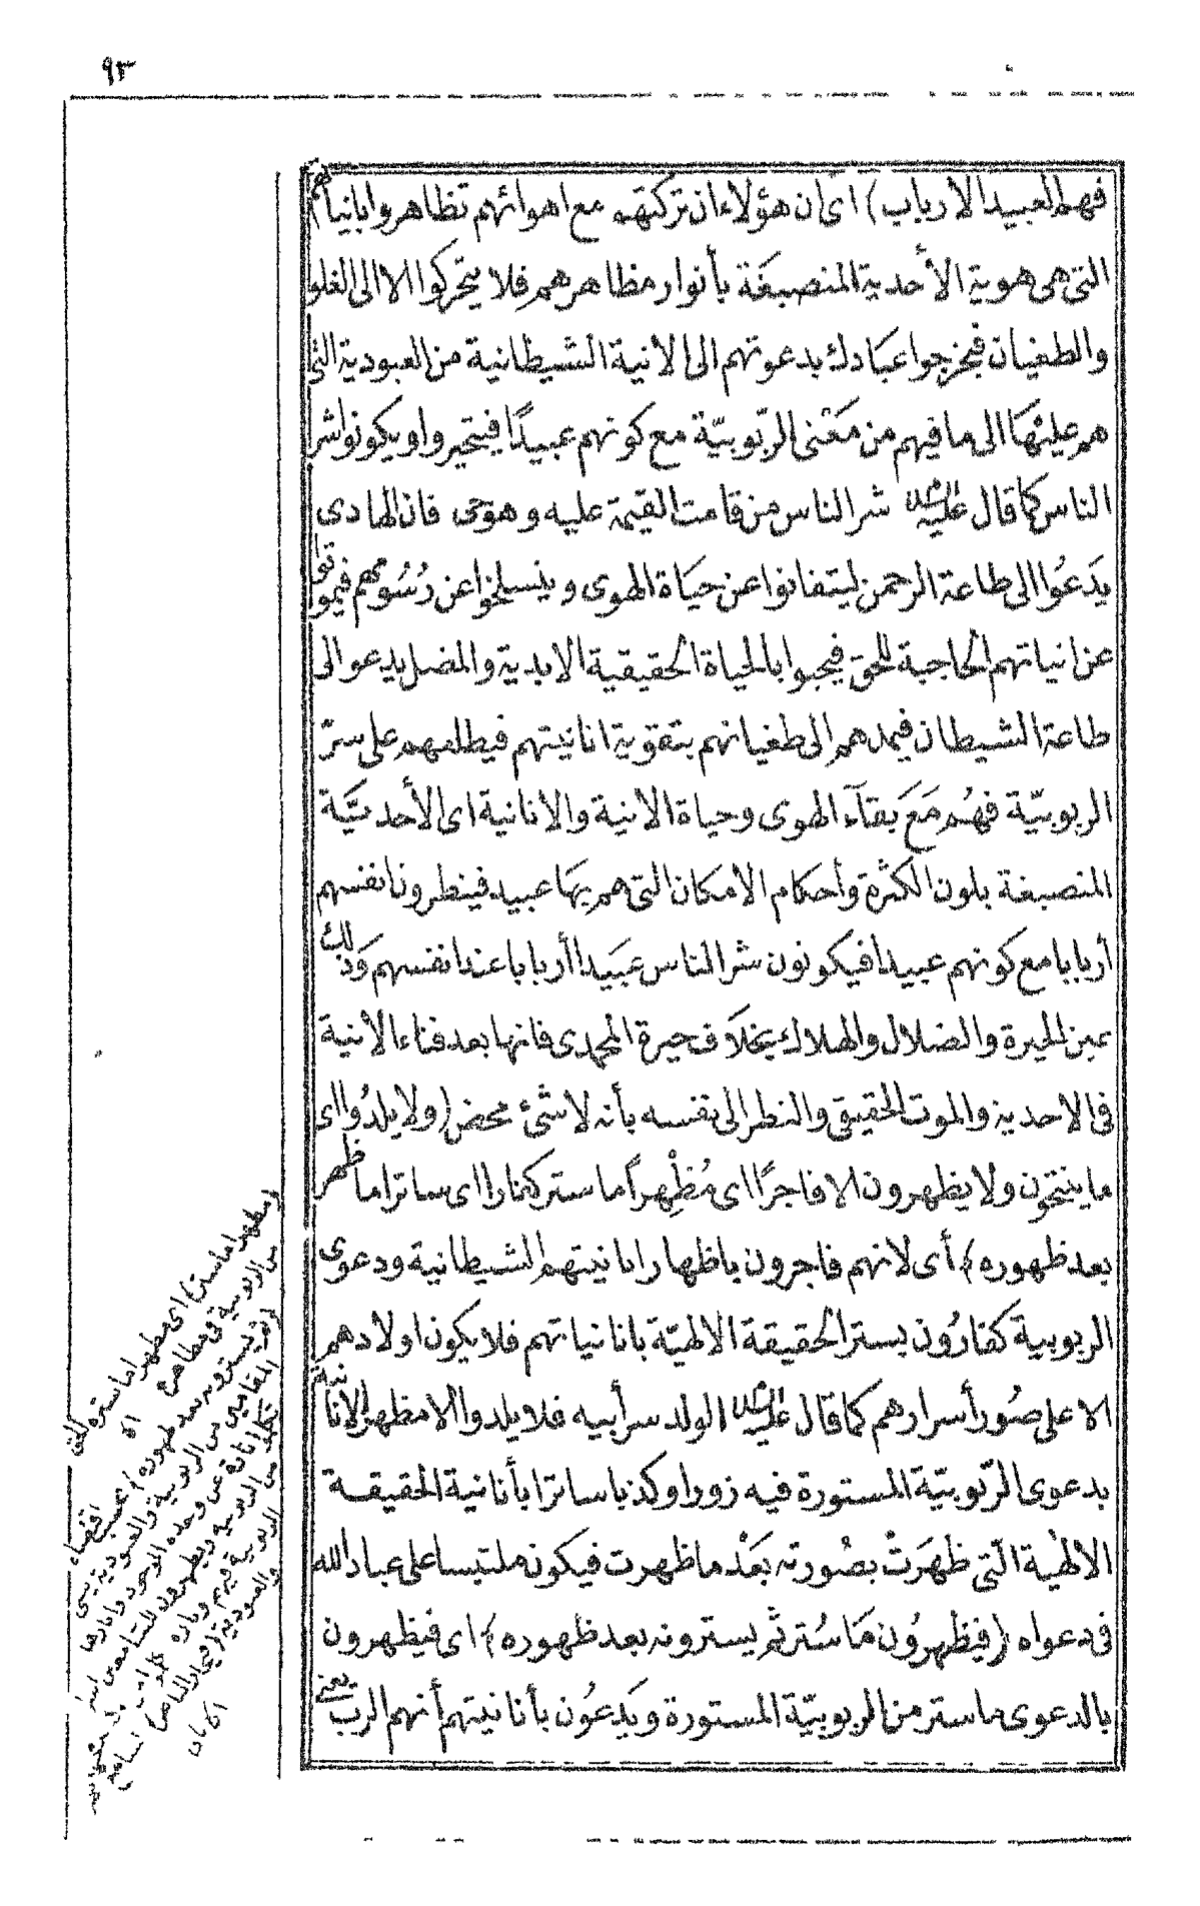 ٩٣
فهم العبيد الارباب) اى ان هؤلاء ان تركتهم مع اهوائهم تظاهروا بانياتهم
التى هى هوية الأحدية المنصبغة بأنوار مظاهرهم فلا يتحركوا الا الى الغلو
والطغيان فيخرجوا عبادك بدعوتهم الى الانية الشيطانية من العبودية التى
هم عليها الى ما فيهم من معنى الربوبيّة مع كونهم عبيدًا فيتحيروا ويكونوا شر
الناس كما قال عليه السلام شر الناس من قامت القيمة عليه وهو حى فان الهادى
يدعُوا الى طاعة الرحمن ليتفانوا عن حياة الهوى وينسلخوا عن رُسُومهم فيموتوا
عن انياتهم الحاجبة للحق فيحيوا بالحياة الحقيقية الابدية والمضل يدعو الى
طاعة الشيطان فيمدهم الى طغيانهم بتقوية انانيتهم فيطلعهم على سرّ
الربوبيّة فهُم مَعَ بقآء الهوى وحياة الانية والانانية اى الأحديَّة
المنصبغة بلون الكثرة وأحكام الامكان التى هم بها عبيد فينظرون انفسهم
أربابا مع كونهم عبيدا فيكونون شر الناس عبَيدا أربابا عند انفسهم وَذلك
عين الحيرة والضلال والهلاك بخلاَف حيرة المحمدى فانها بعد فناء الانية
فى الاحدية والموت الحقيقى والنظر الى نفسه بأنه لا شئ محض (ولا يلدُوا اى
ما ينتجون ولا يظهرون الا فاجرًا اى مُظْهِراً ما ستر كفارا اى ساترا ما ظهر
بعد ظهوره) أى لانهم فاجرون باظهار انانيتهم الشيطانية ودعوى
الربوبية كفارُون بستر الحقيقة الالهيّة بانانياتهم فلا يكون اولادهم
الا على صُور أسرارهم كما قال عليه السلام الولد سر أبيه فلا يلدوا الا مظهر الانانية
بدعوى الرّبوبيّة المستورة فيه زورا وكذبا ساترا بأنانية الحقيقة
الالهية الّتى ظهَرَتْ بصُورته بَعْدْ ما ظهرت فيكون ملتبسا على عباد الله
فى دعواه (فيظهرُون مَا سُتر ثم يسترونه بعد ظهوره) اى فيظهرون
بالدعوى ما ستر من الربوبيّة المستورة ويَدعُون بأنانيتهم أنهم الرب يعنى
(مظهرا ما ستر) اى مظهرا ما ستره الحق
من الربوبية فى مظاهره
(ثم يسترونه بعد ظهوره)